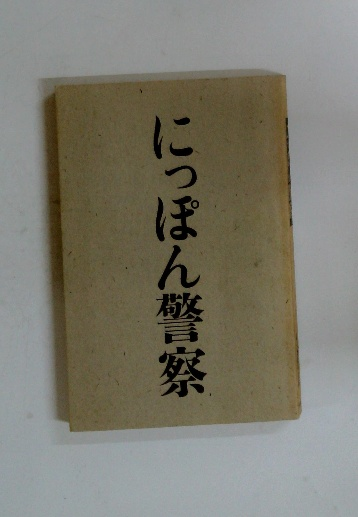 にっぽん警察